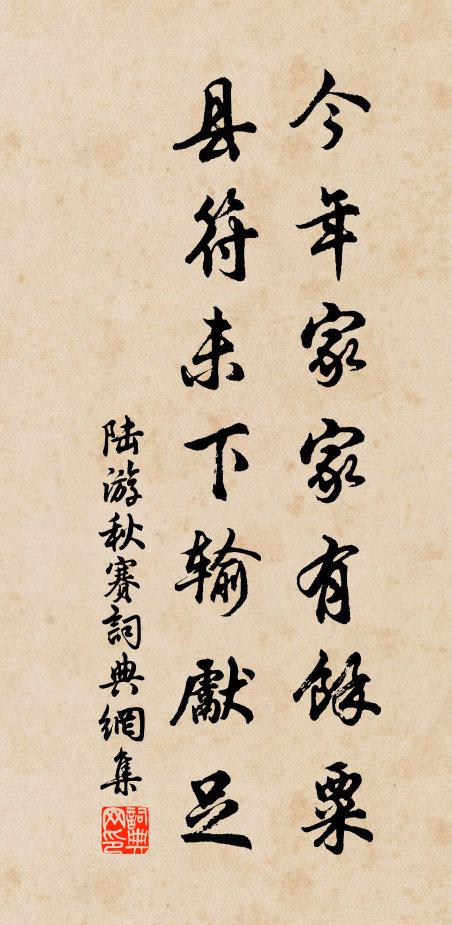 今年家家有餘粟
县符未下输獻足
陆游秋赛詞典網集
詞典网印